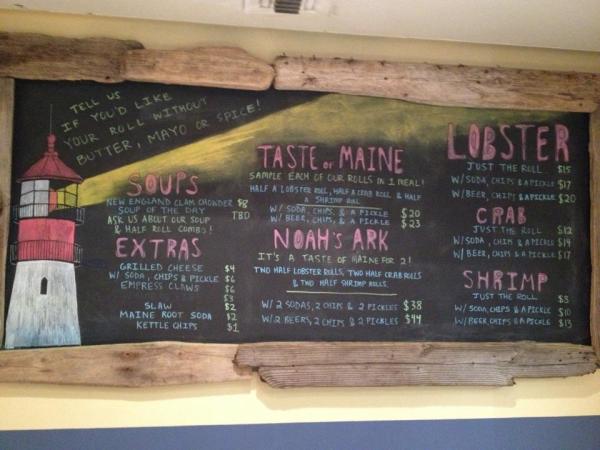 TELL US
IF YOU'D LIKE
YOUR ROLL WITHOUT
BUTTER, MAYO OR SPICE!
SOUPS
NEW ENGLAND CLAM CHOWDER $8
SOUP OF THE DAY TBD
ASK US ABOUT OUR SOUP
& HALF ROLL COMBO!
EXTRAS
GRILLED CHEESE $4
W/ SODA, CHIPS & PICKLE $6
EMPRESS CLAWS $6
$3
SLAW $2
MAINE ROOT SODA $2
KETTLE CHIPS $1
TASTE OF MAINE
SAMPLE EACH OF OUR ROLLS IN 1 MEAL!
HALF A LOBSTER ROLL, HALF A CRAB ROLL, & HALF
A SHRIMP ROLL
W/ SODA, CHIPS, & A PICKLE $20
W/ BEER, CHIPS, & A PICKLE $23
NOAH'S ARK
IT'S A TASTE OF MAINE FOR 2!
TWO HALF LOBSTER ROLLS, TWO HALF CRAB ROLLS
& TWO HALF SHRIMP ROLLS.
W/ 2 SODAS, 2 CHIPS & 2 PICKLES $38
W/ 2 BEERS, 2 CHIPS & 2 PICKLES $44
LOBSTER
JUST THE ROLL $15
W/SODA, CHIPS & A PICKLE $17
W/BEER, CHIPS & A PICKLE $20
CRAB
JUST THE ROLL $12
W/SODA, CHIPS & A PICKLE $14
W/BEER, CHIPS & A PICKLE $17
SHRIMP
JUST THE ROLL $8
W/ SODA, CHIPS & A PICKLE $10
W/ BEER, CHIPS & A PICKLE $13